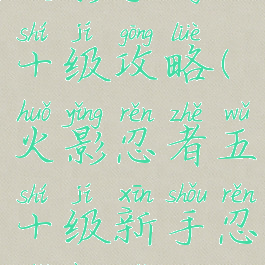 shí jí gōng lüè
十级攻略(
huǒ yǐng rěn zhě wǔ
火影忍者五
shí jí xīn shǒu rěn
十级新手忍